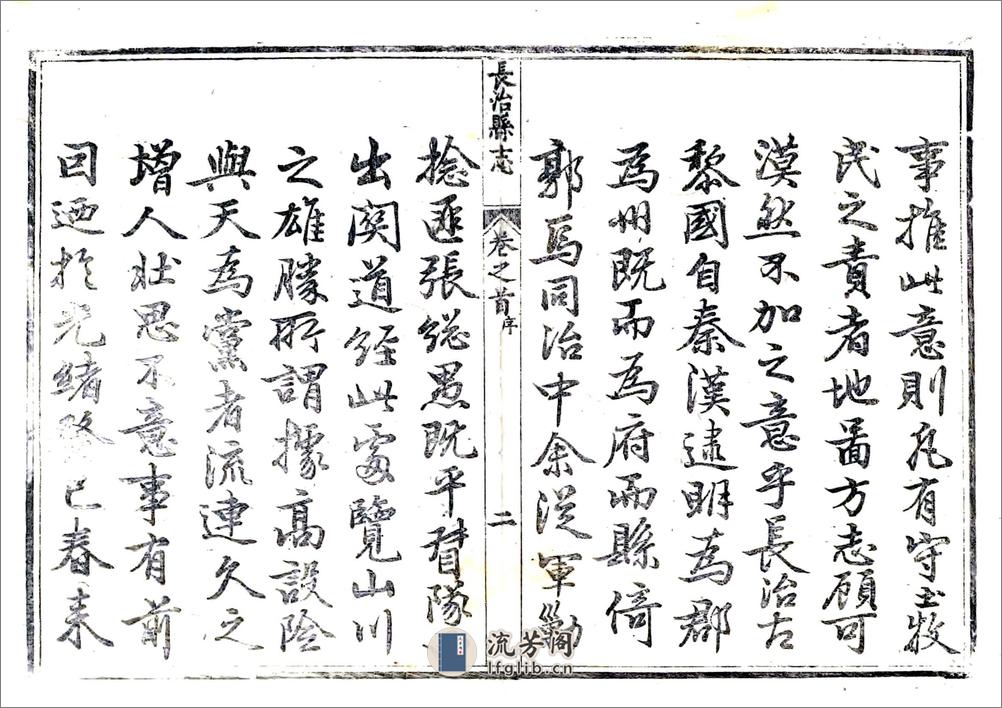 事推此意則凡有守土牧
民之責者地圖方志顧可
漠然不加之意乎長治古
黎國自秦漢逮明為郡
為州既而為府而縣倚
郭焉同治中余從軍勦
長治縣志
卷之首
序
二
捻匪張總愚既平督隊
出関道經此處覽山川
之雄勝所謂據高設險
與天為黨者流連久之
增人壯思不意事有前
因迺於光緒癸巳春来
流芳阁
lfglib.cn